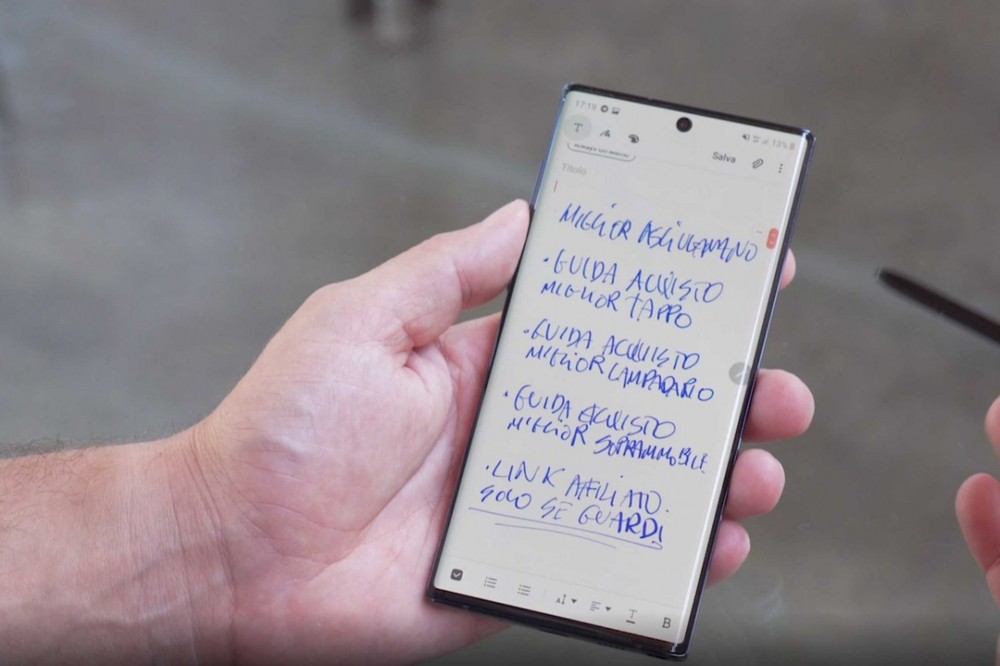 17:19 13%
Salva
Titolo
MIGLIOR ASCIUGAMANO
• GUIDA ACQUISTO
MIGLIOR TAPPO
• GUIDA ACQUISTO
MIGLIOR LAMPADARIO
• GUIDA ACQUISTO
MIGLIOR SOPRAMMOBILE
• LINK AFFILIATO.
SOLO SE GUARDI
T B